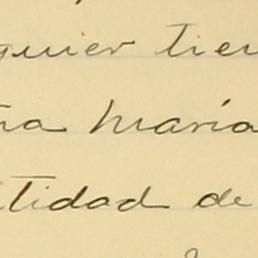 quier tien
na María
tidad de